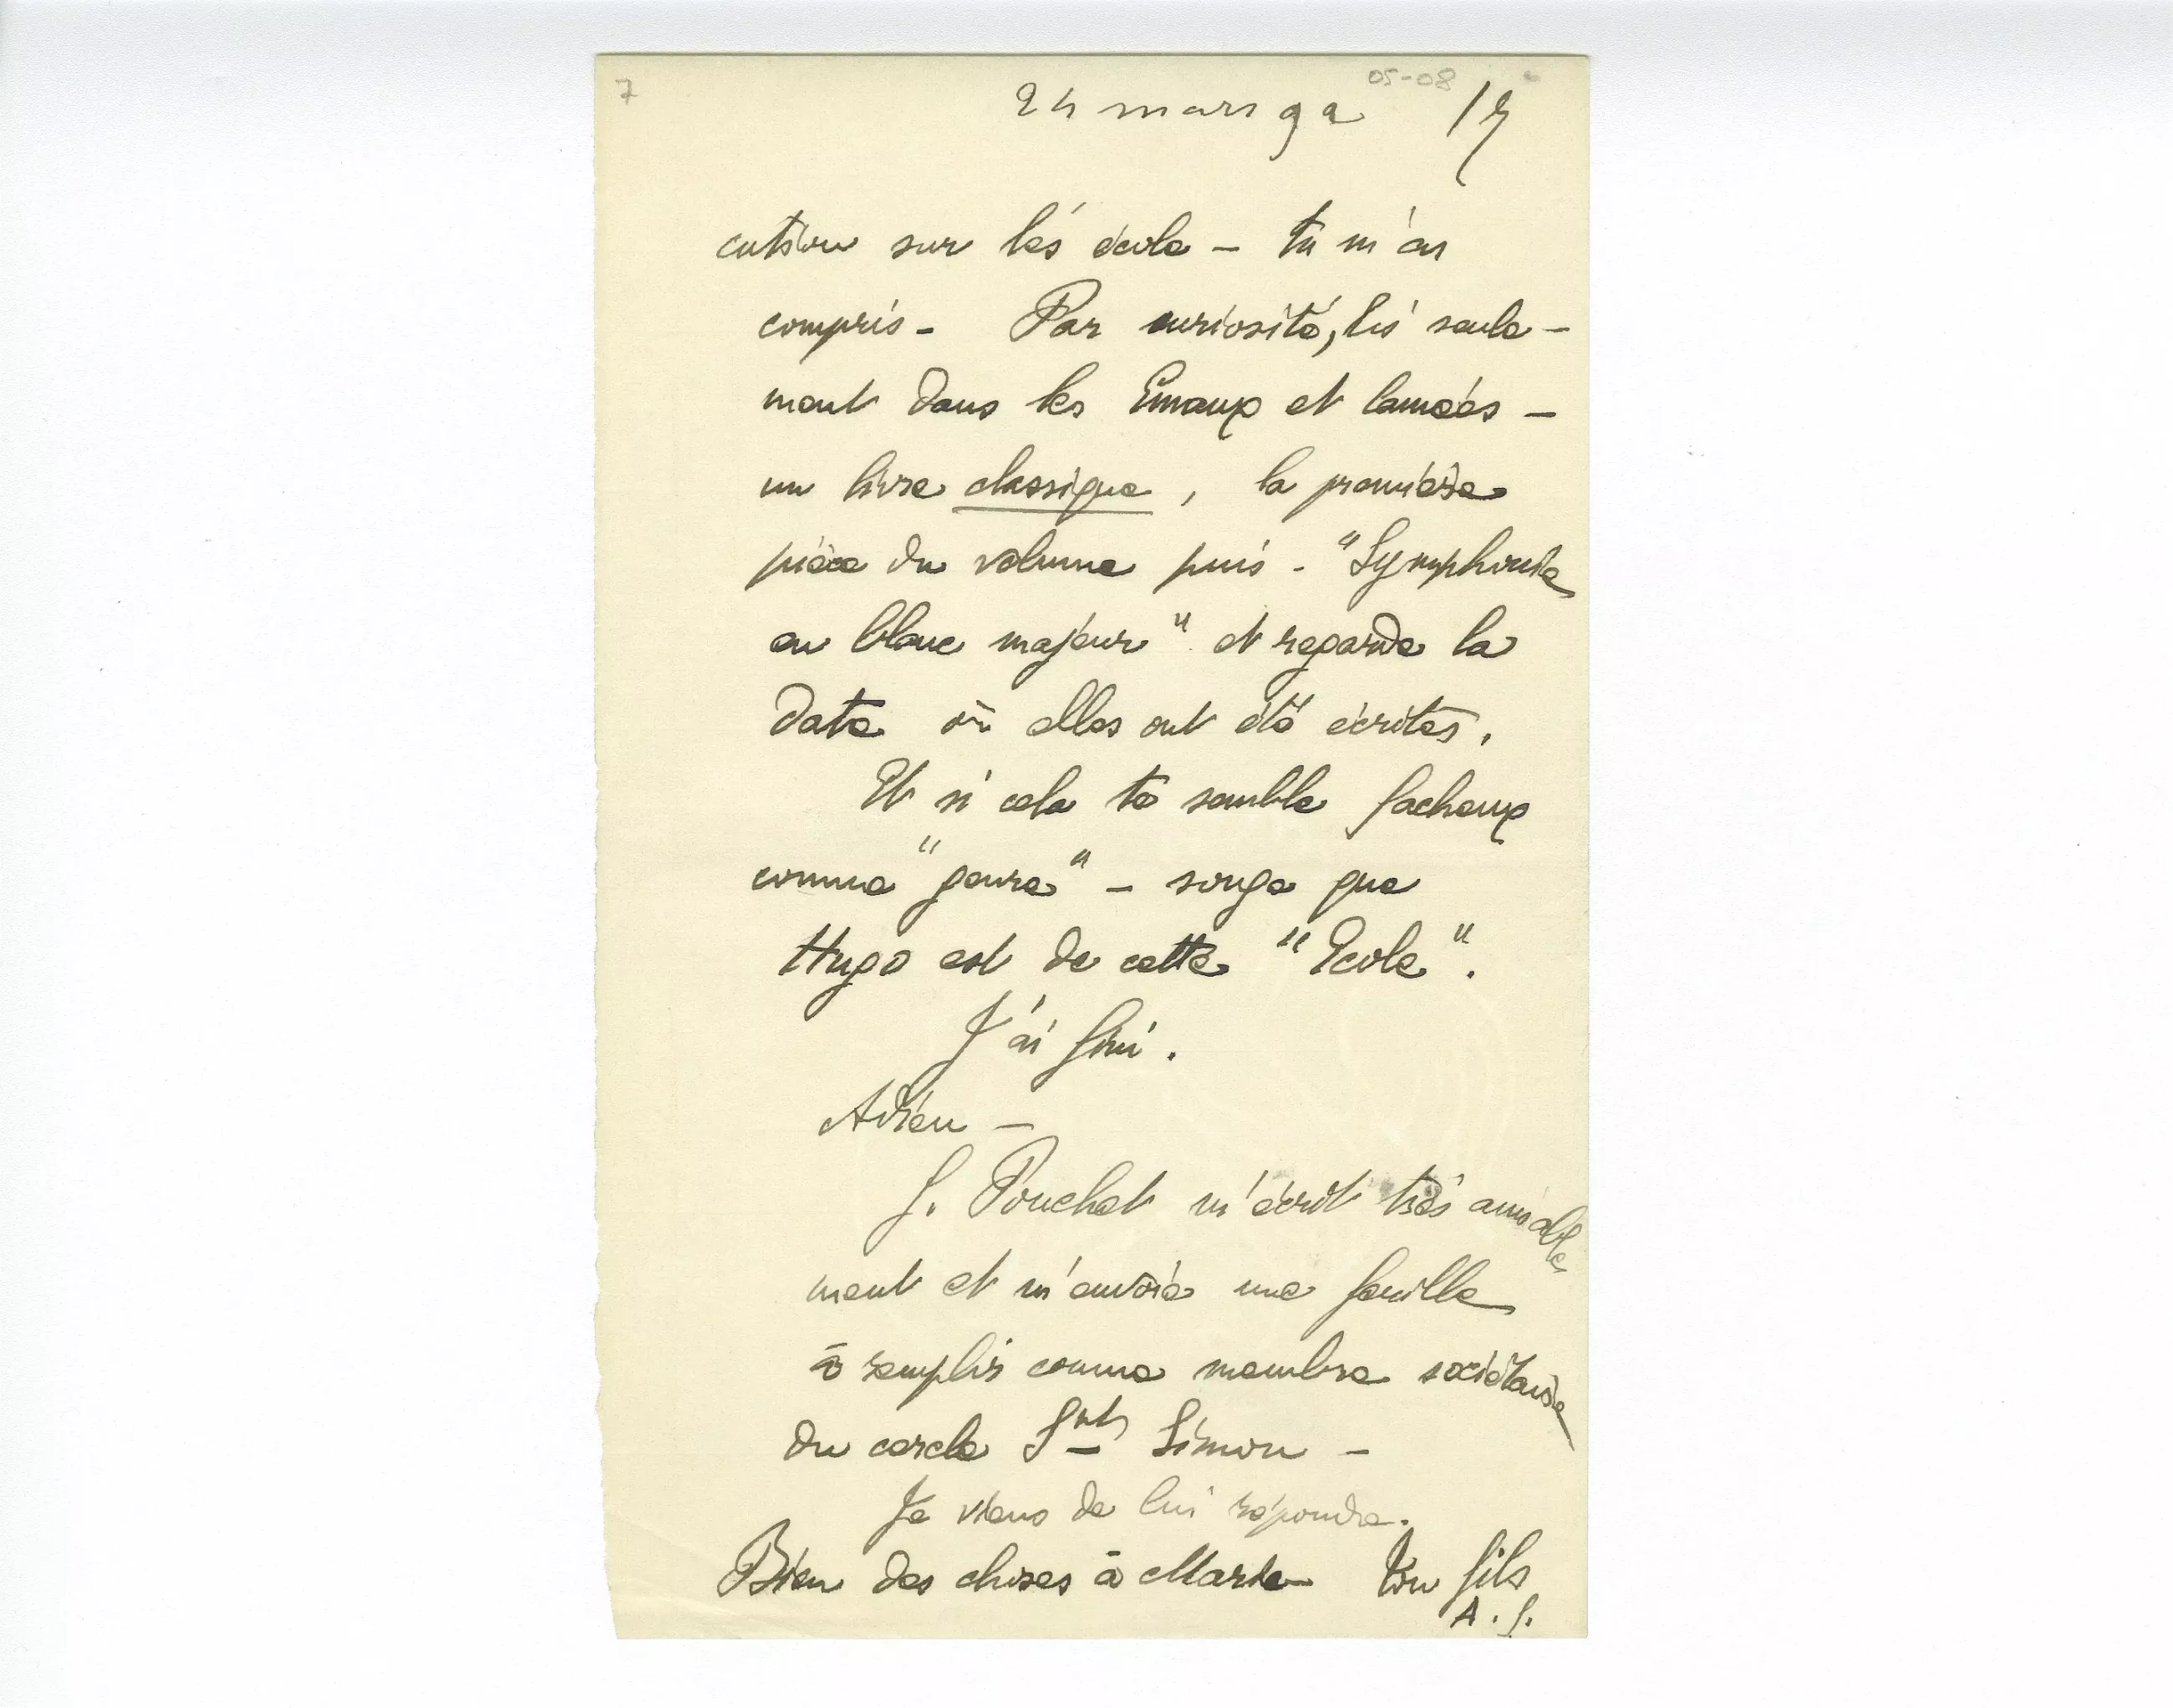 7
05-08
24 mars 92 17
cution sur les école – tu m'as
compris – Par curiosité, lis seule-
ment dans les Emaux et Camées –
un livre classique, la première
pièce du volume puis - "Symphonie
en blanc majeur" et regarde la
date où elles ont été écrites.
Et si cela te semble facheux
comme "genre" – songe que
Hugo est de cette "Ecole".
J'ai fini.
Adieu –
G. Pouchet m'écrit très aimable
ment et m'envoie une feuille
à remplir comme membre sociétaire
du cercle Snt Simon –
Je viens de lui répondre.
Bien des choses à Marie – Ton fils
A. S.